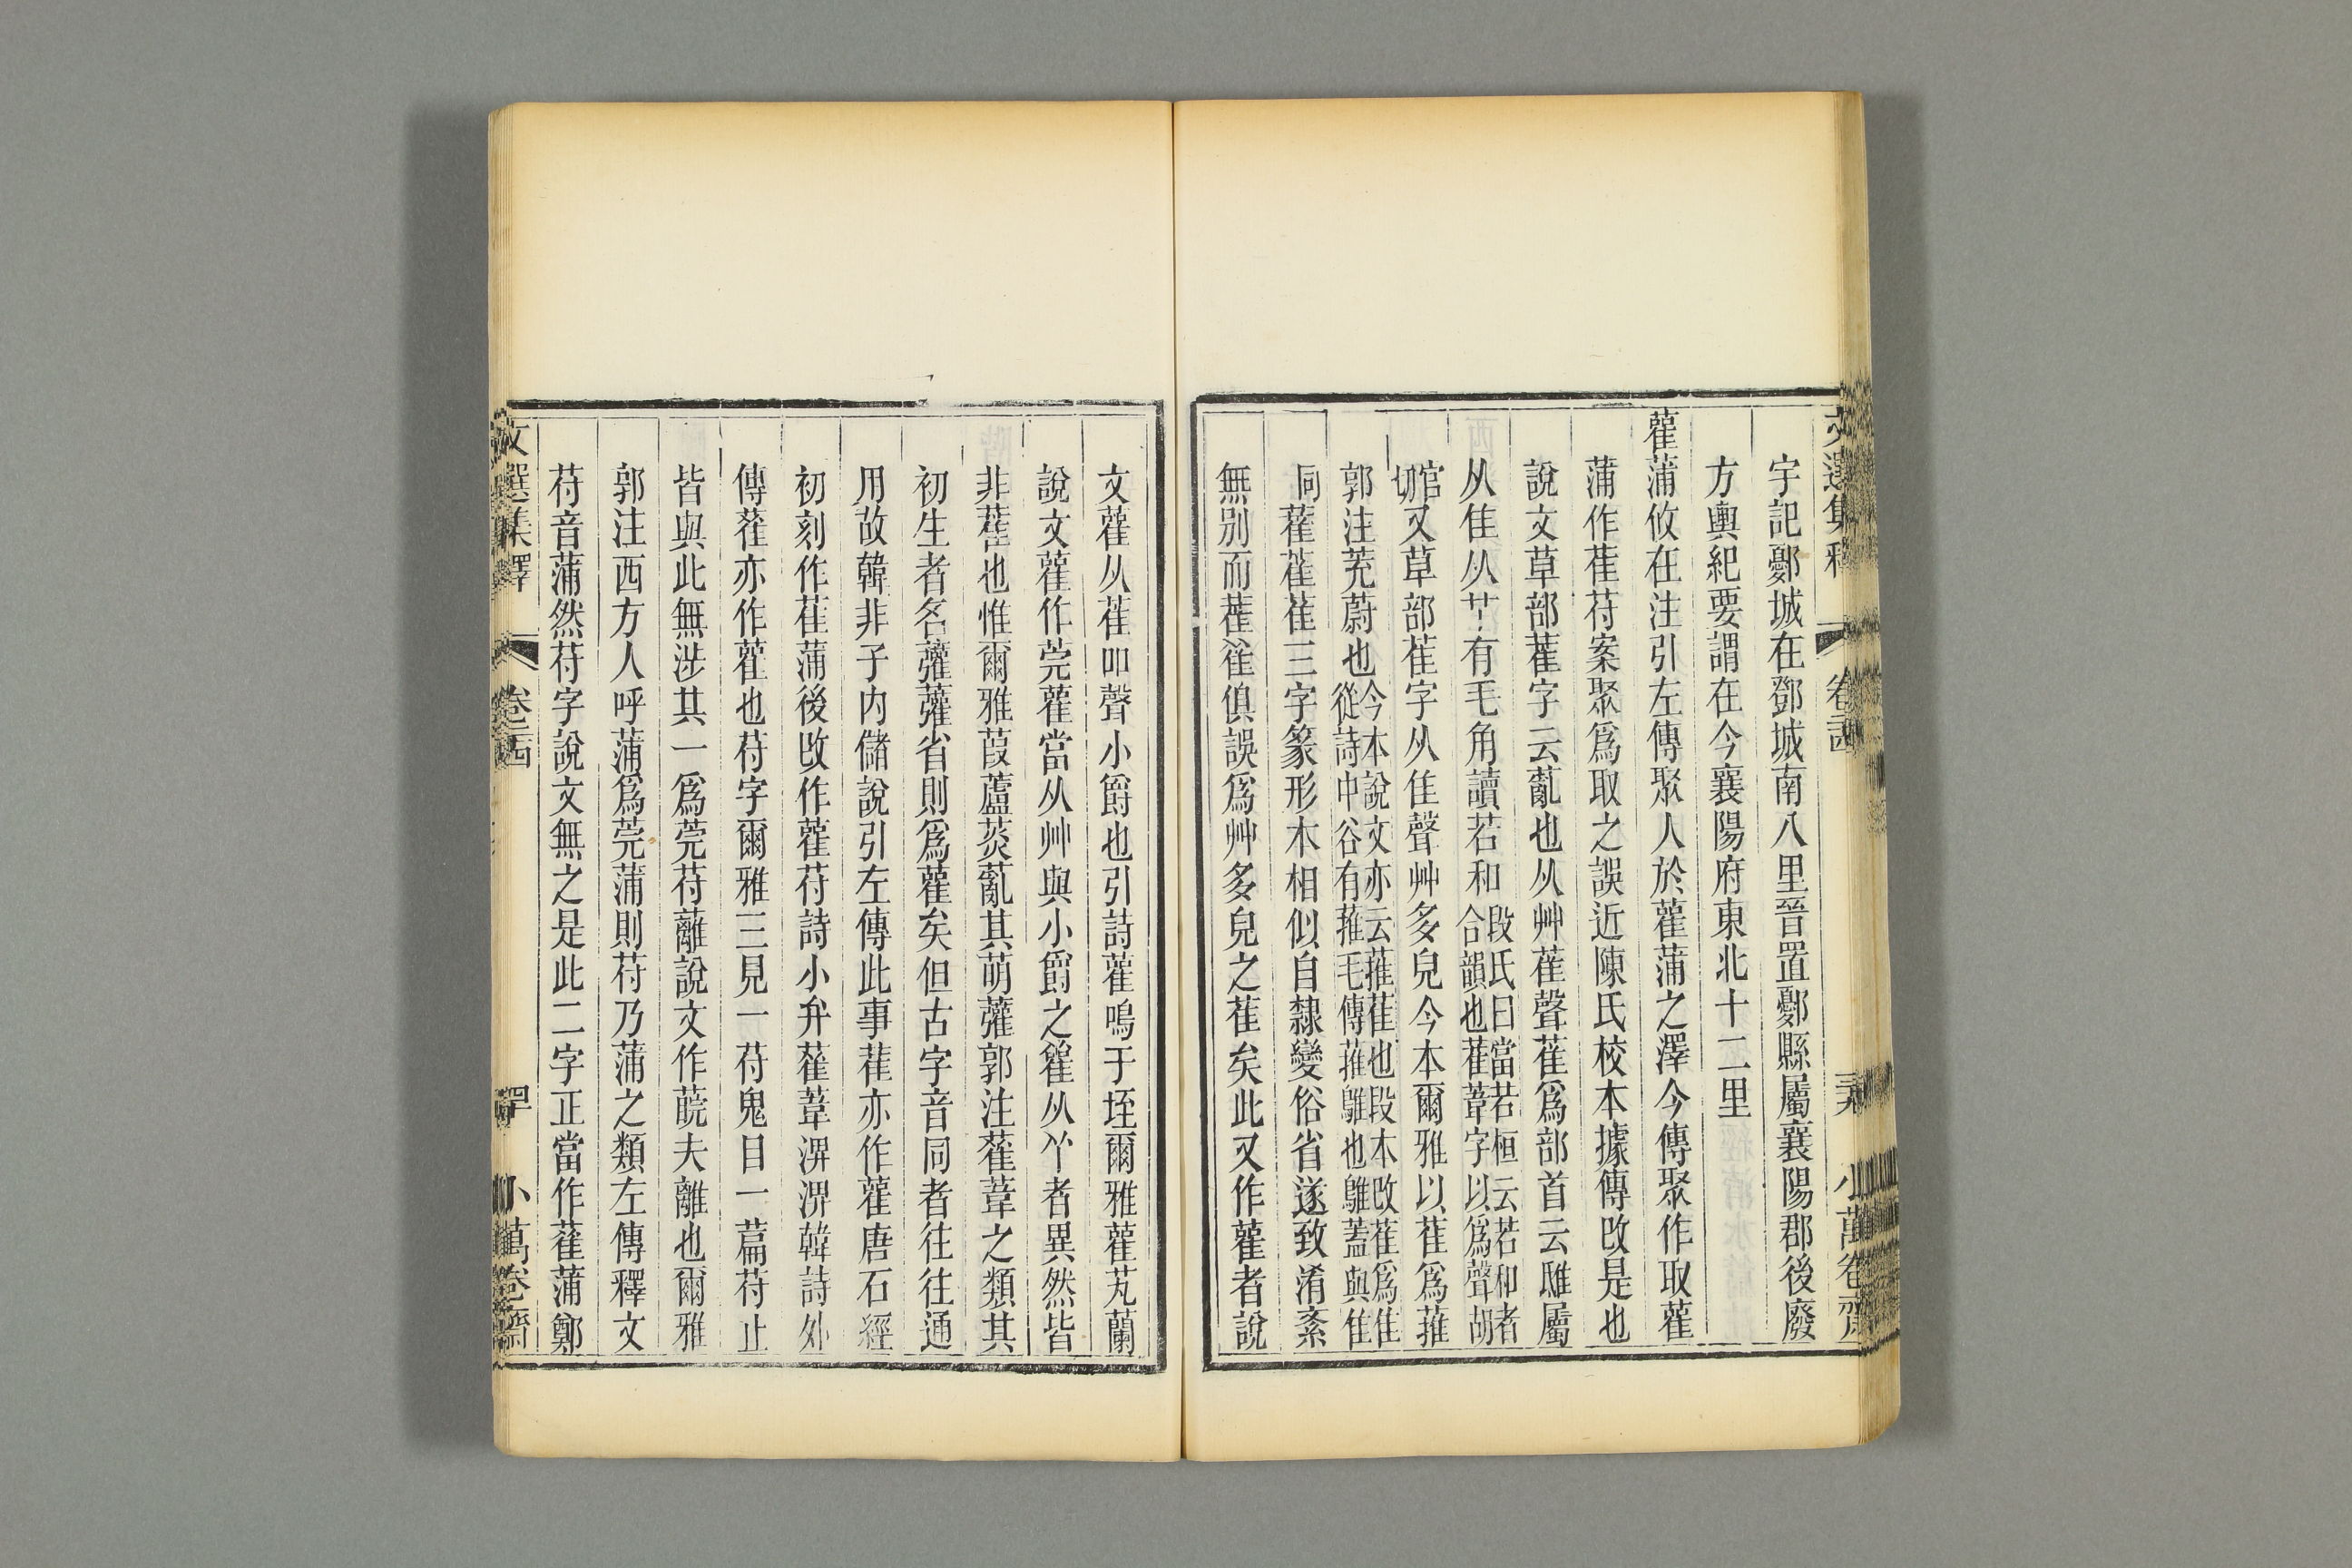 文選集釋 卷西 小萬卷齋
宇記鄾城在鄧城南八里晉置鄾縣屬襄陽郡後廢
方輿紀要謂在今襄陽府東北十二里
雚蒲攸在注引左傳聚人於雚蒲之澤今傳聚作取雚
蒲作萑苻案聚爲取之誤近陳氏校本據傳改是也
說文草部雚字云薍也从艸萑聲萑爲部首云鴟屬
从隹从𦫳有毛角讀若和段氏曰當若桓云若和者合韻也萑葦字以爲聲胡
官切又草部萑字从隹聲艸多皃今本爾雅以萑爲蓷
郭注茺蔚也今本說文亦云蓷萑也段本改萑爲隹從詩中谷有蓷毛傳蓷鵻也鵻蓋與隹
同雚萑萑三字篆形本相似自隸變俗省遂致淆紊
無別而萑雈俱誤爲艸多皃之萑矣此又作雚者說
文雚从萑吅聲小爵也引詩雚鳴于垤爾雅雚芄蘭
說文雚作莞雚當从艸與小爵之雚从𦫳者異然皆
非萑也惟爾雅葭蘆菼薍其萌虇郭注萑葦之類其
初生者名虇虇省則爲雚矣但古字音同者往往通
用故韓非子內儲說引左傳此事萑亦作雚唐石經
初刻作萑蒲後改作雚苻詩小弁萑葦淠淠韓詩外
傳萑亦作雚也苻字爾雅三見一苻鬼目一萹苻止
皆與此無涉其一爲莞苻蘺說文作䓣夫離也爾雅
郭注西方人呼蒲爲莞蒲則苻乃蒲之類左傳釋文
苻音蒲然苻字說文無之是此二字正當作萑蒲鄭
文選集釋 卷西 小萬卷齋